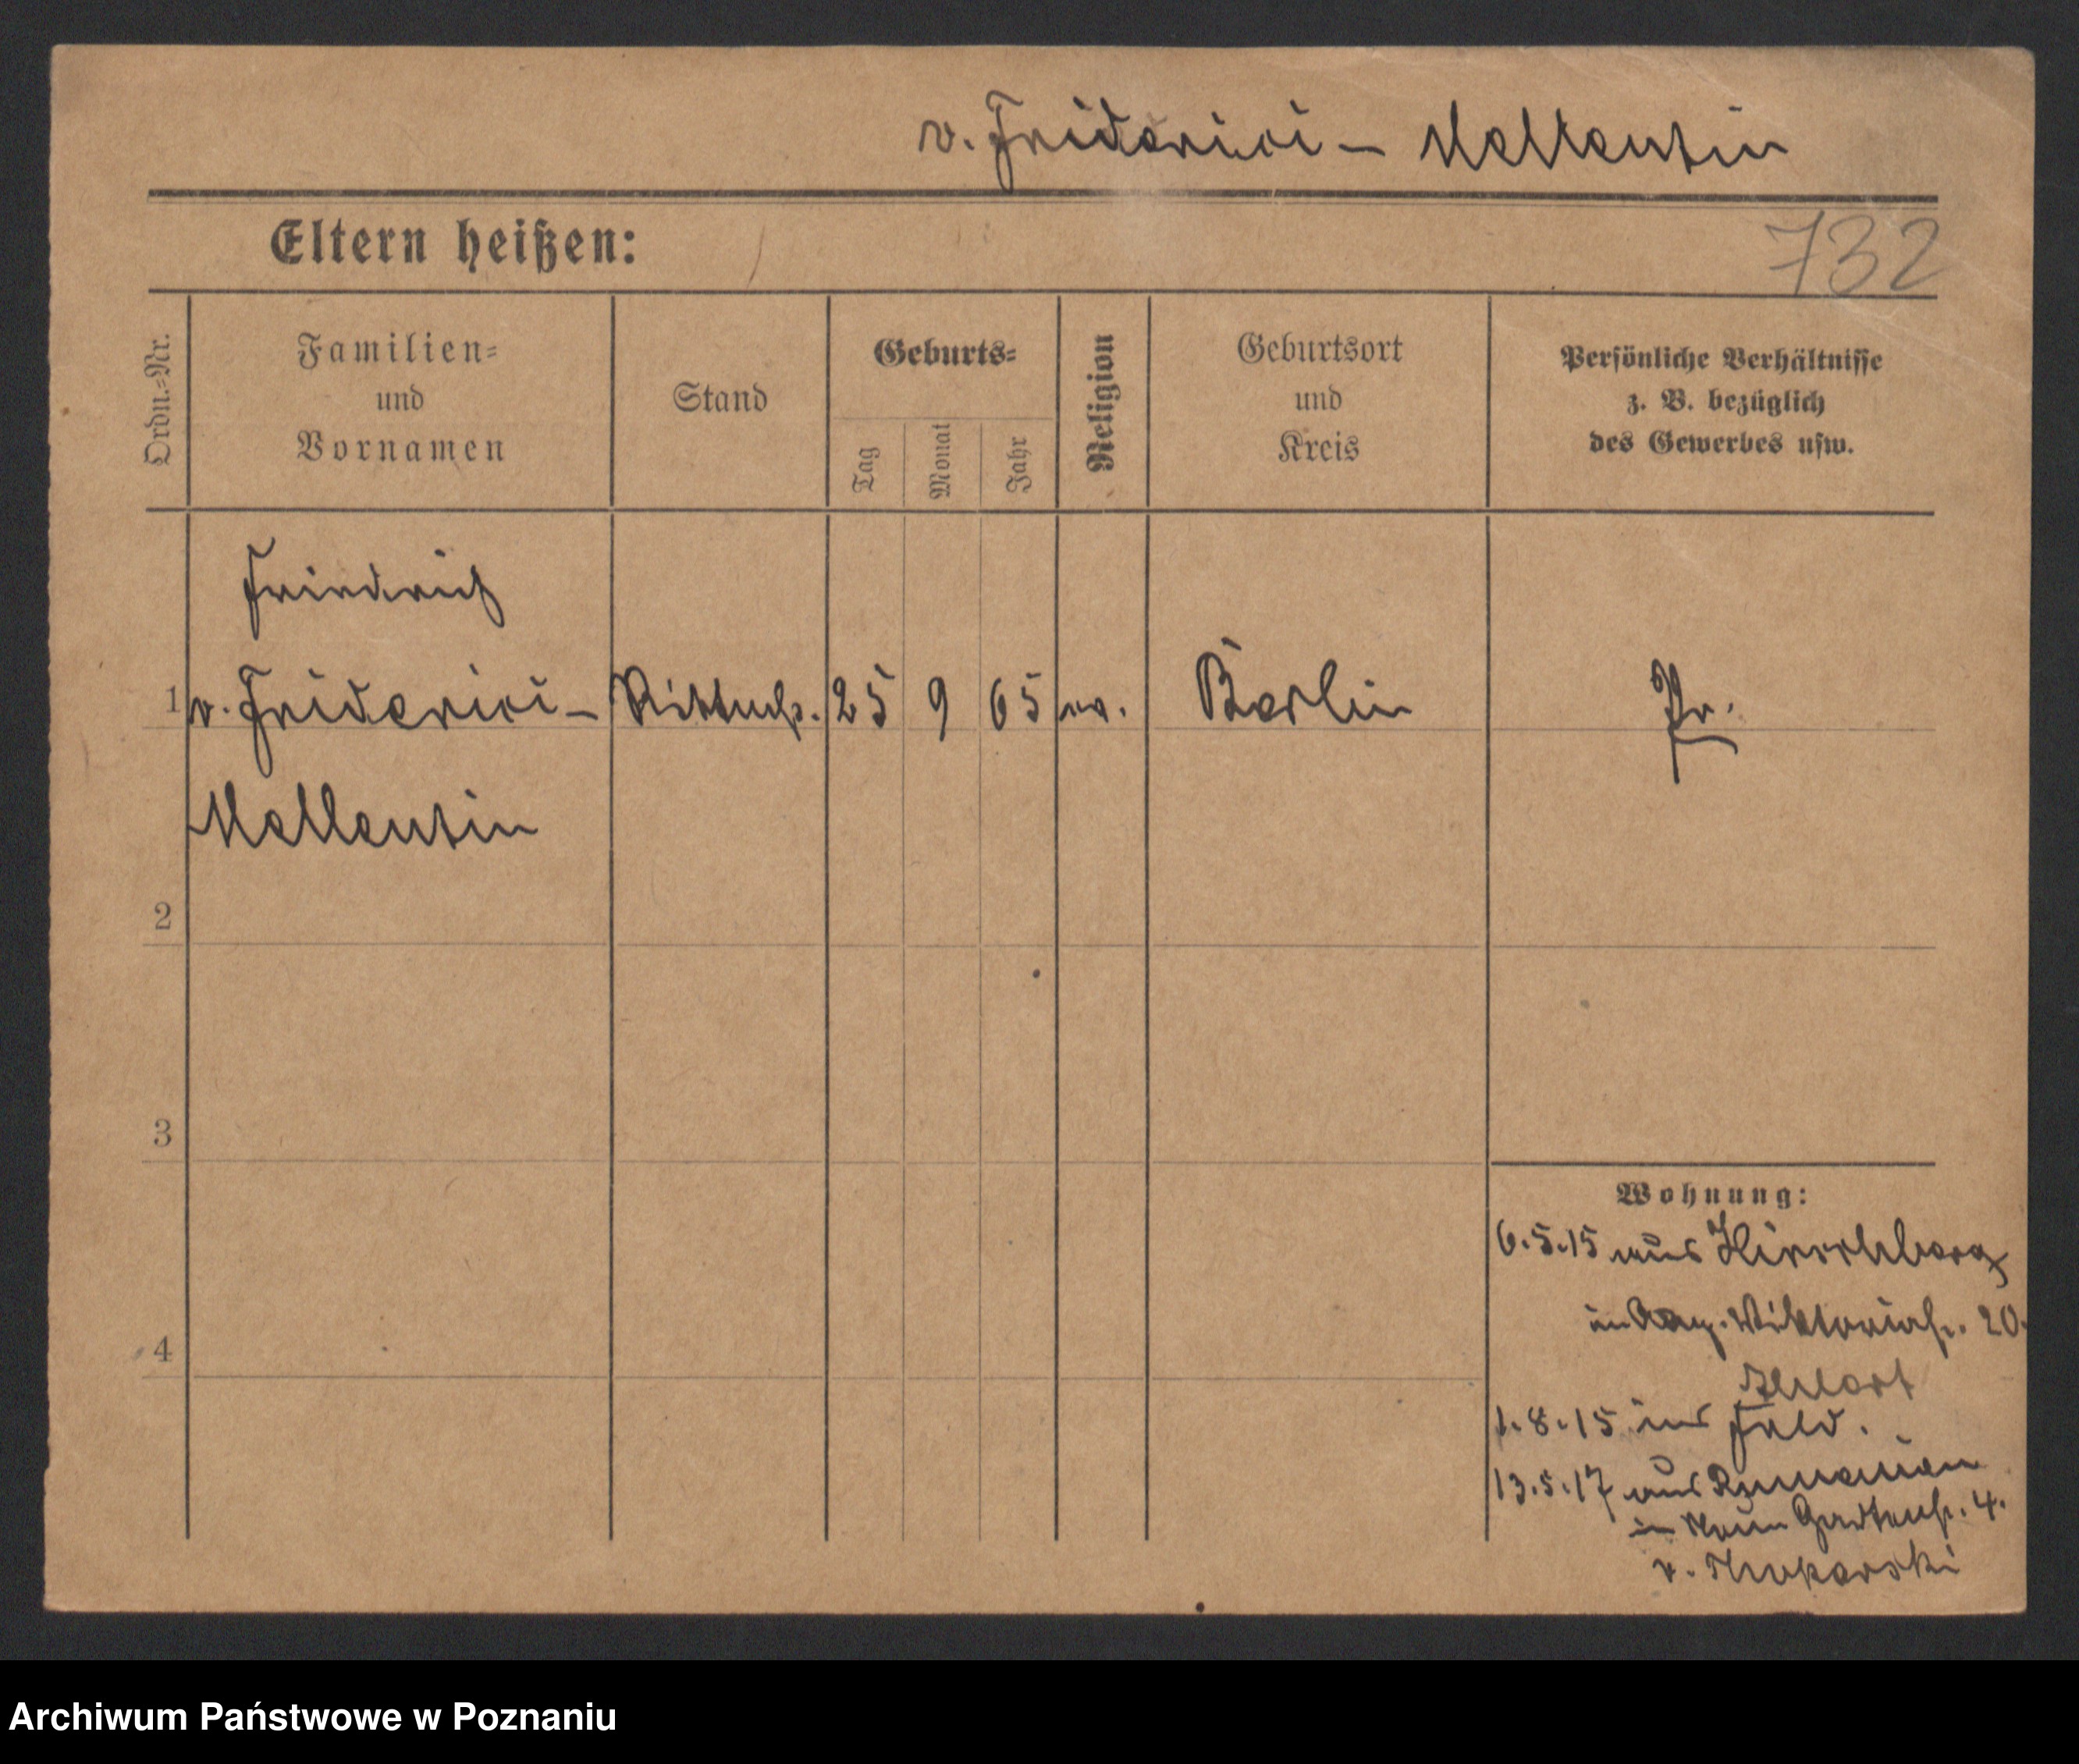 v. Friderici - Mellentin
Eltern heißen:
732
Ordn.=Nr.
Familien=
und
Vornamen
Stand
Geburts=
Tag
Monat
Jahr
Religion
Geburtsort
und
Kreis
Persönliche Verhältnisse
z. B. bezüglich
des Gewerbes usw.
Friedrich
1 v. Friderici - Rittmstr. 25 9 65 ev. Berlin Pr.
Mellentin
2
3
4
Wohnung:
6.5.15 aus Hirschberg
in Viktoriastr. 20.
1.8.15 ins Feld.
13.5.17 aus Rumänien
in Gartenstr. 4.
v.
Archiwum Państwowe w Poznaniu